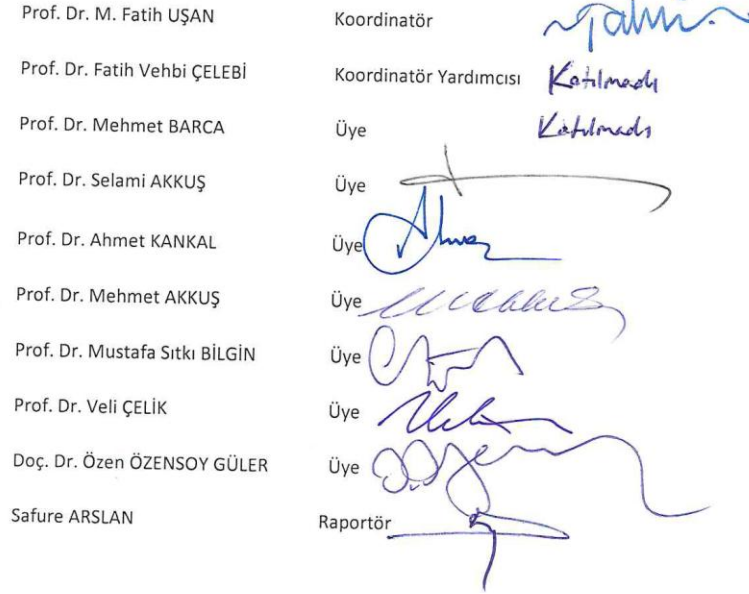 Prof. Dr. M. Fatih UŞAN Koordinatör
Prof. Dr. Fatih Vehbi ÇELEBİ Koordinatör Yardımcısı Katılmadı
Prof. Dr. Mehmet BARCA Üye Katılmadı
Prof. Dr. Selami AKKUŞ Üye
Prof. Dr. Ahmet KANKAL Üye
Prof. Dr. Mehmet AKKUŞ Üye
Prof. Dr. Mustafa Sıtkı BİLGİN Üye
Prof. Dr. Veli ÇELİK Üye
Doç. Dr. Özen ÖZENSOY GÜLER Üye
Safure ARSLAN Raportör